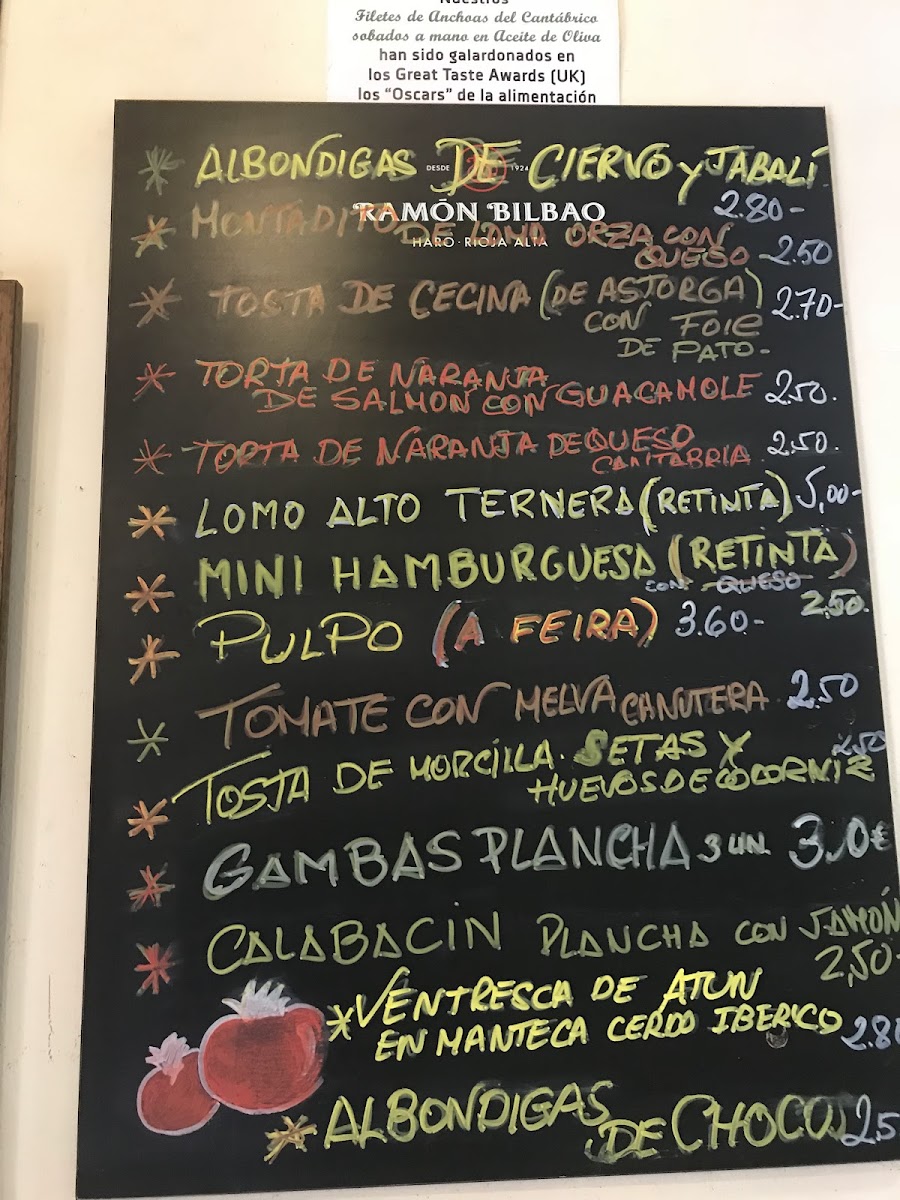 Nuestros
Filetes de Anchoas del Cantábrico
sobados a mano en Aceite de Oliva
han sido galardonados en
los Great Taste Awards (UK)
los "Oscars" de la alimentación
ALBONDIGAS DE CIERVO y JABALÍ
DESDE 1924
2.80-
RAMÓN BILBAO
HARO · RIOJA ALTA
MONTADITO DE LOMO ORZA CON
QUESO -2.50
TOSTA DE CECINA (DE ASTORGA) 2.70-
CON FOIE
DE PATO-
TORTA DE NARANJA
DE SALMÓN CON GUACAMOLE 2.50.
TORTA DE NARANJA DE QUESO 2.50.
CANTABRIA
LOMO ALTO TERNERA (RETINTA) 5,00-
MINI HAMBURGUESA (RETINTA)
CON QUESO 2.50.
PULPO (A FEIRA) 3.60-
TOMATE CON MELVA CANUTERA 2.50
TOSTA DE MORCILLA. SETAS Y 2.50
HUEVOS DE CODORNIZ
GAMBAS PLANCHA 3 UN. 3,0€
CALABACIN PLANCHA CON JAMÓN
2,50-
VENTRESCA DE ATUN
EN MANTECA CERDO IBERICO 2.80
ALBONDIGAS
DE CHOCO 2.5